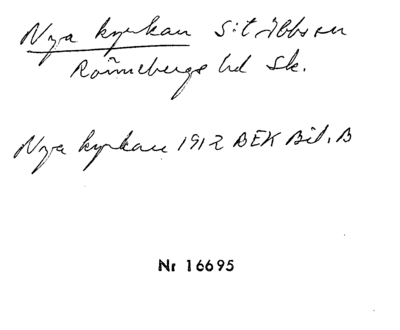 Nya kyrkan S:t Ibbs sn
Rönnebergs hd Sk.
Nya kyrkan 1912 BEK Bil. B
Nr 16695